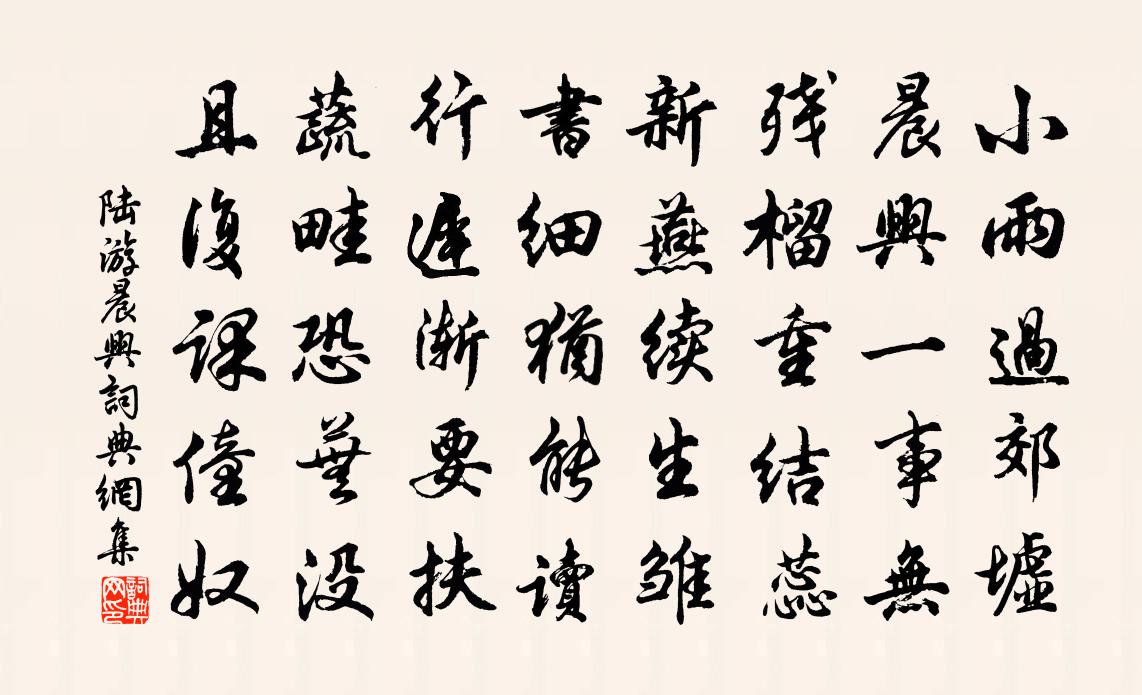 小雨過郊墟
晨興一事無
残榴重結蕊
新燕续生雏
書细猶能讀
行遲渐要扶
蔬畦恐蕪没
且復課僮奴
陆游晨興詞典網集
詞典网印